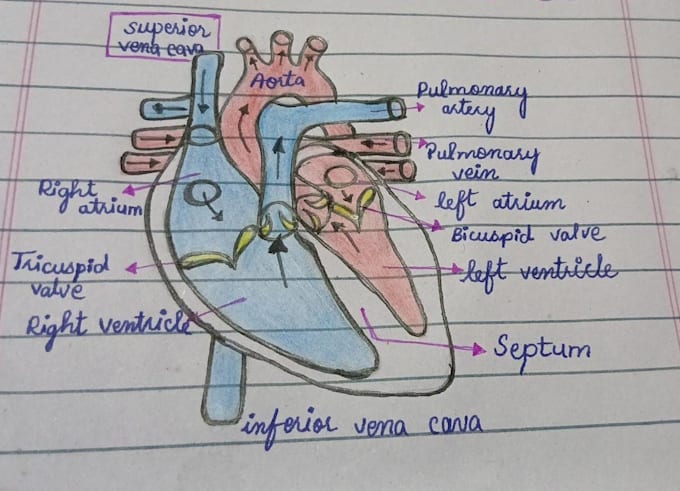 superior
vena cava
Aorta
Pulmonary
artery
Pulmonary
vein
Right
atrium
left atrium
Bicuspid valve
Tricuspid
valve
left ventricle
Right ventricle
Septum
inferior vena cava